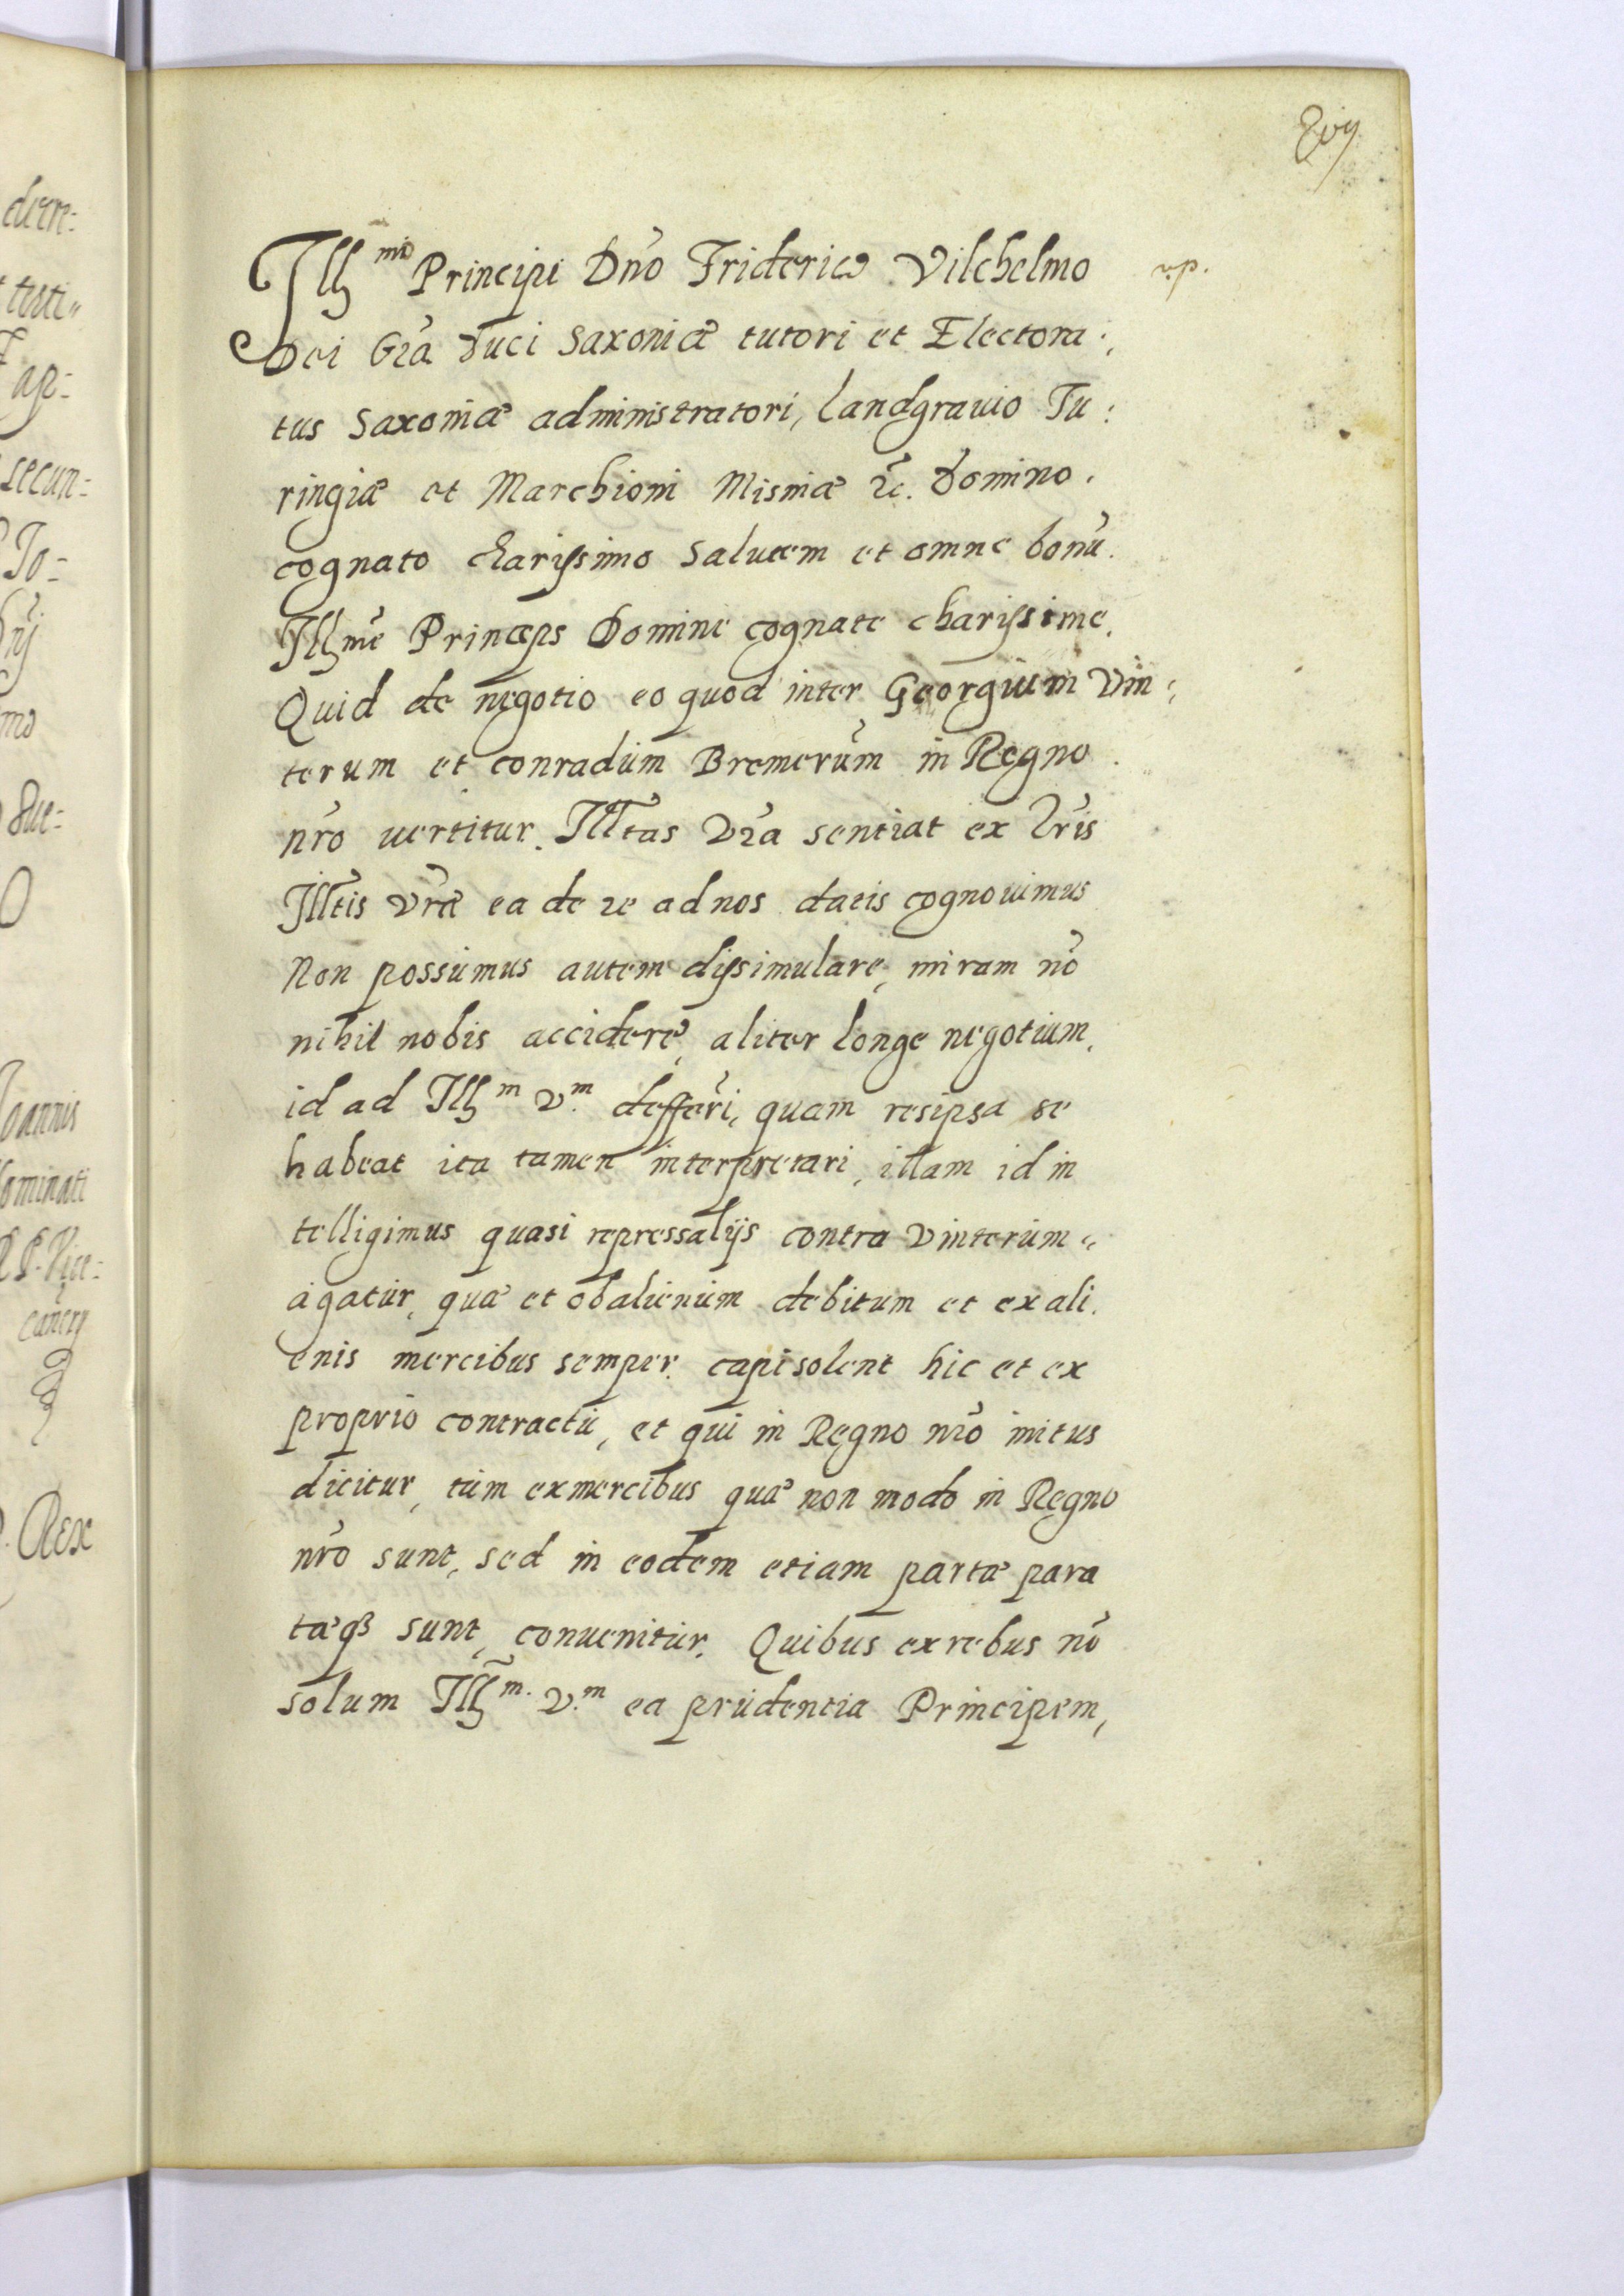 Illmo Principi Dño Friderico Vilchelmo
v.p.
Dei Gr̃a Duci Saxoniæ tutori et Electora:
tus Saxoniæ administratori, Landgrauio Tu:
ringiæ et Marchioni Misniæ &c. Domino.
cognato charissimo salutem et omne bonũ.
Illme Princeps Domine cognate charissime.
Quid de negotio eo quod inter Georgium Vin:
terum et Conradum Bremerum in Regno
nr̃o uertitur. Illtas Vr̃a sentiat ex lr̃is
Illtis Vr̃æ ea de re ad nos datis cognouimus
Non possumus autem dissimulare, miram nõ
nihil nobis accidere, aliter longe negotium,
id ad Illm V.m defferri, quam resipsa se
habeat ita tamen interpretari, illam id in
telligimus quasi repressalijs contra Vinterum
agatur, quæ et obalienum debitum et exali.
enis mercibus semper capi solent hic et ex
proprio contractu, et qui in Regno nr̃o initus
dicitur, tum exmercibus quæ non modo in Regno
nr̃o sunt, sed in eodem etiam partæ para
tæq3 sunt, conuenitur. Quibus exrebus nõ
solum Illm. V.m ea prudentia Principem,